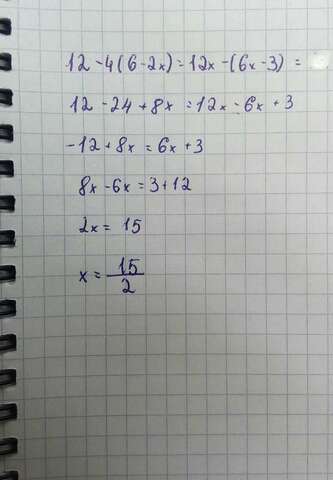 12 - 4(6 - 2x) = 12x - (6x - 3) =
12 - 24 + 8x = 12x - 6x + 3
-12 + 8x = 6x + 3
8x - 6x = 3 + 12
2x = 15
x = 15/2